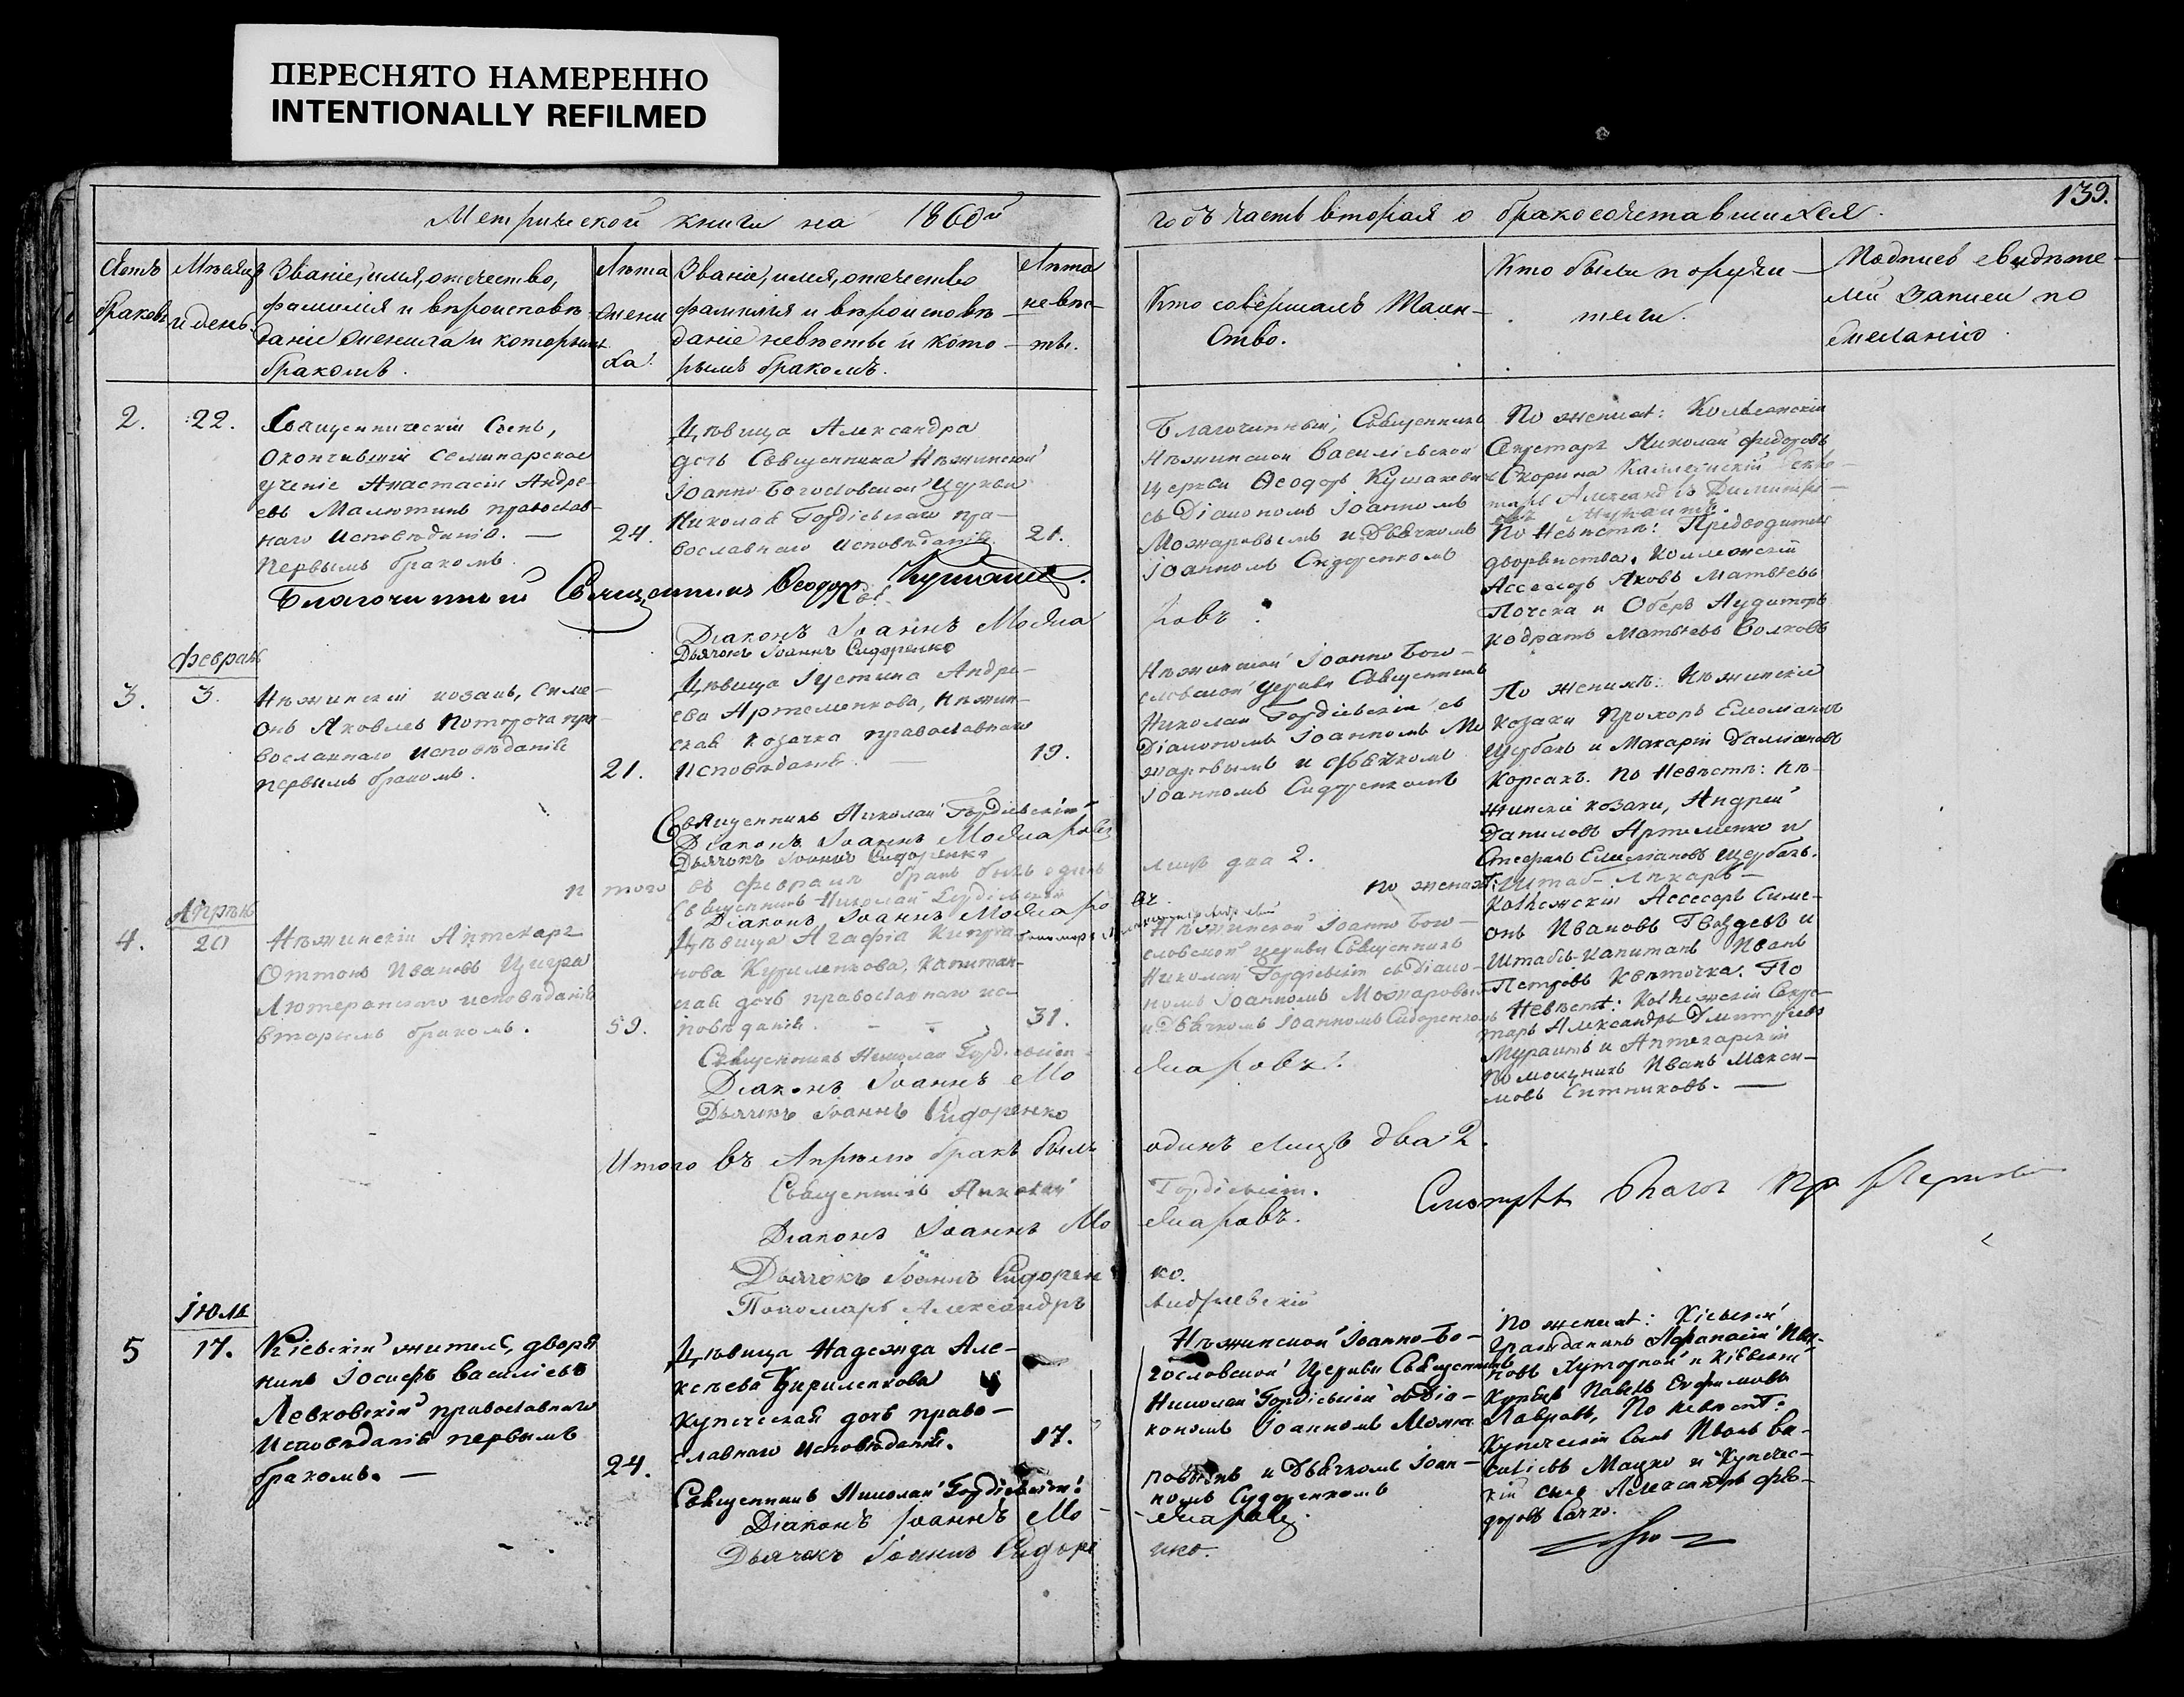 ПЕРЕСНЯТО НАМЕРЕННО
INTENTIONALLY REFILMED
139.
Метрической книги на 1860й
годъ часть вторая о бракосочетавшихся.
Счетъ браковъ
Мѣсяцъ и день.
Званіе, имя, отчество,
фамилія и вѣроисповѣ-
даніе жениха и которымъ
бракомъ.
Лѣта
жени
ха.
Званіе, имя, отчество
фамилія и вѣроисповѣ-
даніе невѣсты и кото-
рымъ бракомъ.
Лѣта
невѣс-
ты.
Кто совершалъ Таин-
ство.
Кто были поручи-
тели.
Подписъ свидѣте-
лей записи по
желанію.
2.
22.
Священническій Сынъ,
Окончившій семинарское
ученіе Анастасій Андре-
евъ Малютинъ православ-
наго Исповѣданія. —
первымъ бракомъ.
24.
Дѣвица Александра
дочь Священника Нѣжинской
Іоанно-Богословской Церкви
Николая Гордіевскаго пра-
вославнаго исповѣданія.
21.
Благочинный, Священникъ
Нѣжинской Васильевской
церкви Ѳеодоръ
съ Діакономъ Іоанномъ
Можаровымъ и Дьячкомъ
Іоанномъ Сидоренкомъ
По женихѣ: Коллежскій
Секретарь Николай Федоровъ
Скорина Коллежскій Секре-
тарь Александръ Димитрі-
евъ
По Невѣстѣ: Предводитель
дворянства, Коллежскій
Ассесоръ Яковъ Матвѣевъ
Почека и Оберъ Аудиторъ
Кодратъ Матвѣевъ Волковъ
Благочинный Священникъ Ѳеодоръ
Діаконъ Іоаннъ Можа
ровъ.
Дьячокъ Іоаннъ Сидоренко
Февраль
3.
3.
Нѣжинскій козакъ, Симе-
онъ Яковлевъ Потороча пра-
вославнаго исповѣданія
первымъ бракомъ.
21.
Дѣвица Іустина Андре-
ева Артеменкова, Нѣжин-
ская козачка православнаго
исповѣданія. —
19.
Нѣжинской Іоанно Бого-
словской Церкви Священникъ
Николай Гордіевскій съ
Діакономъ Іоанномъ Мо
жаровымъ и Дьячкомъ
Іоанномъ Сидоренкомъ
По женихѣ: Нѣжинскіе
козаки Прохоръ Емельяновъ
Щербакъ и Макарій Даміановъ
Корсакъ. По Невѣстѣ: Нѣ-
жинскіе козаки, Андрей
Даниловъ Артеменко и
Стефанъ Емельяновъ Щербакъ.
Священникъ Николай Гордіевскій
Діаконъ Іоаннъ Можаровъ
Дьячокъ Іоаннъ Сидоренко
Итого въ февралѣ бракъ былъ одинъ
лицъ два 2.
Священникъ Николай Гордіевскій
Діаконъ Іоаннъ Можаро
въ.
Апрѣль
4.
20
Нѣжинскій Аптекарь
Оттонъ Ивановъ Цигра
Лютеранскаго исповѣданія
вторымъ бракомъ.
59.
Дѣвица Агафія Кипріа-
нова Куриленкова, капитан-
ская дочь православнаго ис-
повѣданія. — —
31.
Нѣжинской Іоанно Бого-
словской церкви Священникъ
Николай Гордіевскій съ Діако-
номъ Іоанномъ Можаровымъ
и Дьячкомъ Іоанномъ Сидоренкомъ
По женихѣ: Штаб-Лѣкарь-
Коллежскій Ассесоръ Симе-
онъ Ивановъ Гвоздевъ и
Штабсъ-Капитанъ Иванъ
Петровъ Квѣточка. По
Невѣстѣ: Коллежскій Секре-
тарь Александръ Дмитріевъ
и Аптекарскій
помощникъ Иванъ Макси-
мовъ Ситниковъ. —
Священникъ Николай Гордіевскій
Діаконъ Іоаннъ Мо
жаровъ.
Дьячокъ Іоаннъ Сидоренко
Итого въ Апрѣлѣ бракъ былъ
одинъ лицъ два 2.
Священникъ Николай
Гордіевскій.
Діаконъ Іоаннъ Мо
жаровъ.
Дьячокъ Іоаннъ Сидорен
ко.
Пономарь Александръ
Андріевскій
Іюль
5
17.
Кіевскій житель, дворя
нинъ Іосифъ Васильевъ
Левковскій православнаго
исповѣданія первымъ
бракомъ. —
24.
Дѣвица Надежда Але-
ксѣева Кириленкова
купеческая дочь право-
славнаго исповѣданія.
17.
Нѣжинской Іоанно-Бо-
гословской Церкви Священникъ
Николай Гордіевскій съ Діа-
кономъ Іоанномъ Можа
ровымъ и Дьячкомъ Іоан-
номъ Сидоренкомъ
По женихѣ: Кіевскій
Гражданинъ Афанасій Ива-
новъ Хуторной и Кіевскій
Купецъ Павелъ Ефимовъ
Лавровъ, По невѣстѣ:
Купеческій Сынъ Иванъ Ва-
сильевъ Мацко и Купечес-
кій сынъ Александръ Фео-
доровъ Сачко.
Священникъ Николай Гордіевскій
Діаконъ Іоаннъ Мо
жаровъ.
Дьячокъ Іоаннъ Сидоре
нко.